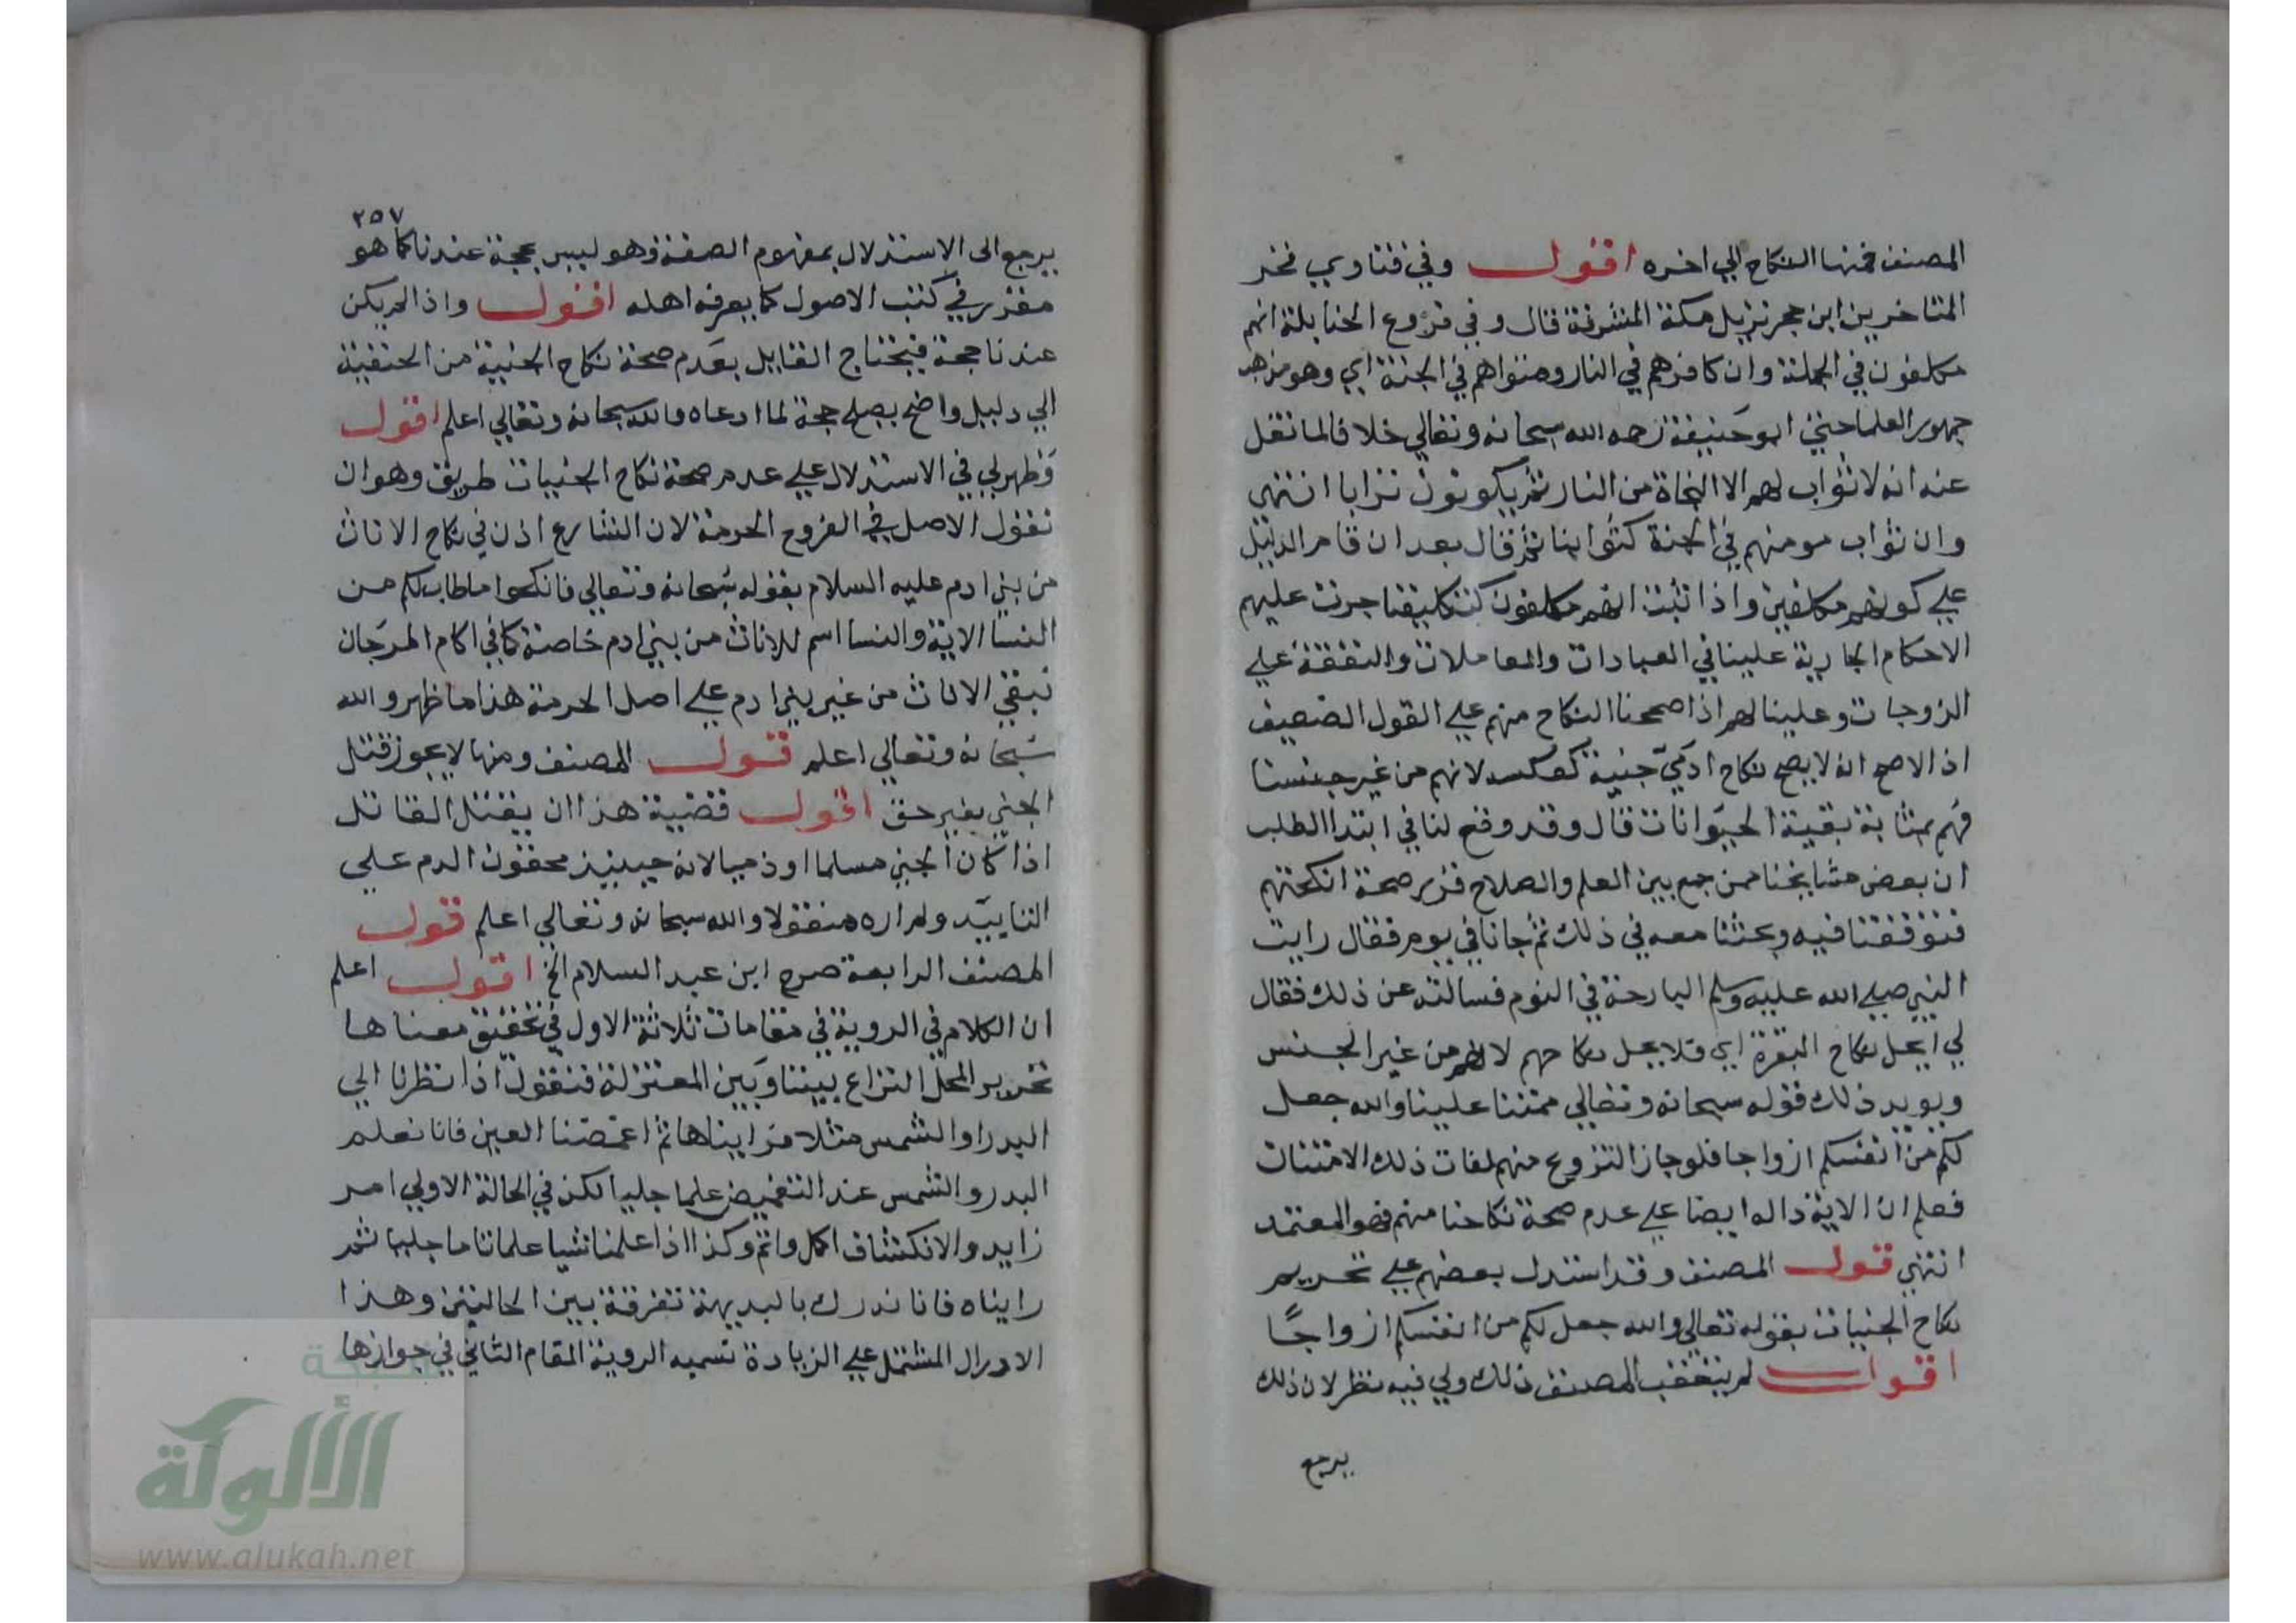 المصنف فمنها النكاح الي اخره اقول وفي فتاوي فخر
المتاخرين ابن حجر نزيل مكة المشرفة قال وفي فروع الحنابلة انهم
مكلفون في الجملة وان كافرهم في النار ومنواهم في الجنة اي وهو مذهب
جمهور العلما حتي ابو حنيفة رحمه الله سبحانه وتعالي خلافا لما نقل
عنه انه لا ثواب لهم الا النجاة من النار ثم يكونون ترابا انتهي
وان ثواب مومنهم في الجنة كثوابنا ثم قال بعد ان قام الدليل
علي كونهم مكلفين واذا ثبت انهم مكلفون كتكليفنا جرت عليهم
الاحكام الجارية علينا في العبادات والمعاملات والنفقة علي
الزوجات وعلينا لهم اذا صححنا النكاح منهم علي القول الضعيف
اذ الاصح انه لا يصح نكاح ادمي جنية كعكسه لانهم من غير جنسنا
فهم بمثابة بقية الحيوانات قال وقد وقع لنا في ابتدا الطلب
ان بعض مشايخنا ممن جمع بين العلم والصلاح قرر صحة انكحتهم
فتوقفنا فيه وبحثنا معه في ذلك ثم جانا في يوم فقال رايت
النبي صلي الله عليه وسلم البارحة في النوم فسالته عن ذلك فقال
لي ايحل نكاح البقرة اي فلا يحل نكاحهم لانهم من غير الجنس
ويويد ذلك قوله سبحانه وتعالي ممتنا علينا والله جعل
لكم من انفسكم ازواجا فلو جاز التزوج منهم لفات ذلك الامتنان
فعلم ان الاية دالة ايضا علي عدم صحة نكاحنا منهم فهو المعتمد
انتهي قول المصنف وقد استدل بعضهم علي تحريم
نكاح الجنيات بقوله تعالي والله جعل لكم من انفسكم ازواجًا
اقول لم يتعقب المصنف ذلك ولي فيه نظر لان ذلك
يرجع
٢٥٧
يرجع الى الاستدلال بمفهوم الصفة وهو ليس بحجة عندنا كما هو
مقرر في كتب الاصول كما يعرفه اهله اقول واذا لم يكن
عندنا حجة فيحتاج القايل بعدم صحة نكاح الجنية من الحنفية
الي دليل واضح يصلح حجة لما ادعاه والله سبحانه وتعالي اعلم اقول
وظهر لي في الاستدلال علي عدم صحة نكاح الجنيات طريق وهو ان
نقول الاصل في الفروج الحرمة لان الشارع اذن في نكاح الاناث
من بني ادم عليه السلام بقوله سبحانه وتعالي فانكحوا ما طاب لكم من
النسا الاية والنسا اسم للاناث من بني ادم خاصة كما في اكام المرجان
فبقي الاناث من غير بني ادم علي اصل الحرمة هذا ما ظهر والله
سبحانه وتعالي اعلم قول المصنف ومنها لا يجوز قتل
الجني بغير حق اقول قضية هذا ان يقتل القاتل
اذا كان الجني مسلما او ذميا لانه حينيذ محقون الدم علي
التابيد ولم اره منقولا والله سبحانه وتعالي اعلم قول
المصنف الرابعة صرح ابن عبد السلام الخ اقول اعلم
ان الكلام في الروية في مقامات ثلاثة الاول في تحقيق معناها
تحرير المحل النزاع بيننا وبين المعتزلة فنقول اذا نظرنا الي
البدر او الشمس مثلا فرايناها ثم اغمضنا العين فانا نعلم
البدر والشمس عند التغميض علما جليا لكن في الحالة الاولي امر
زايد والانكشاف اكمل واتم وكذا اذا علمنا شيا علما تاما جليا ثم
رايناه فانا ندرك بالبديهة تفرقة بين الحالتين وهذا
الادراك المشتمل علي الزيادة تسميه الروية المقام الثاني في جوازها
شبكة
الألوكة
www.alukah.net